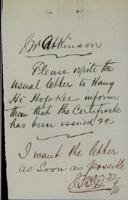 Mr Atkinson
Please write the
usual letter to Hang
Hi Hop Kee inform
them that the Certificate
has been issued &c
I want the letter
as soon as possible